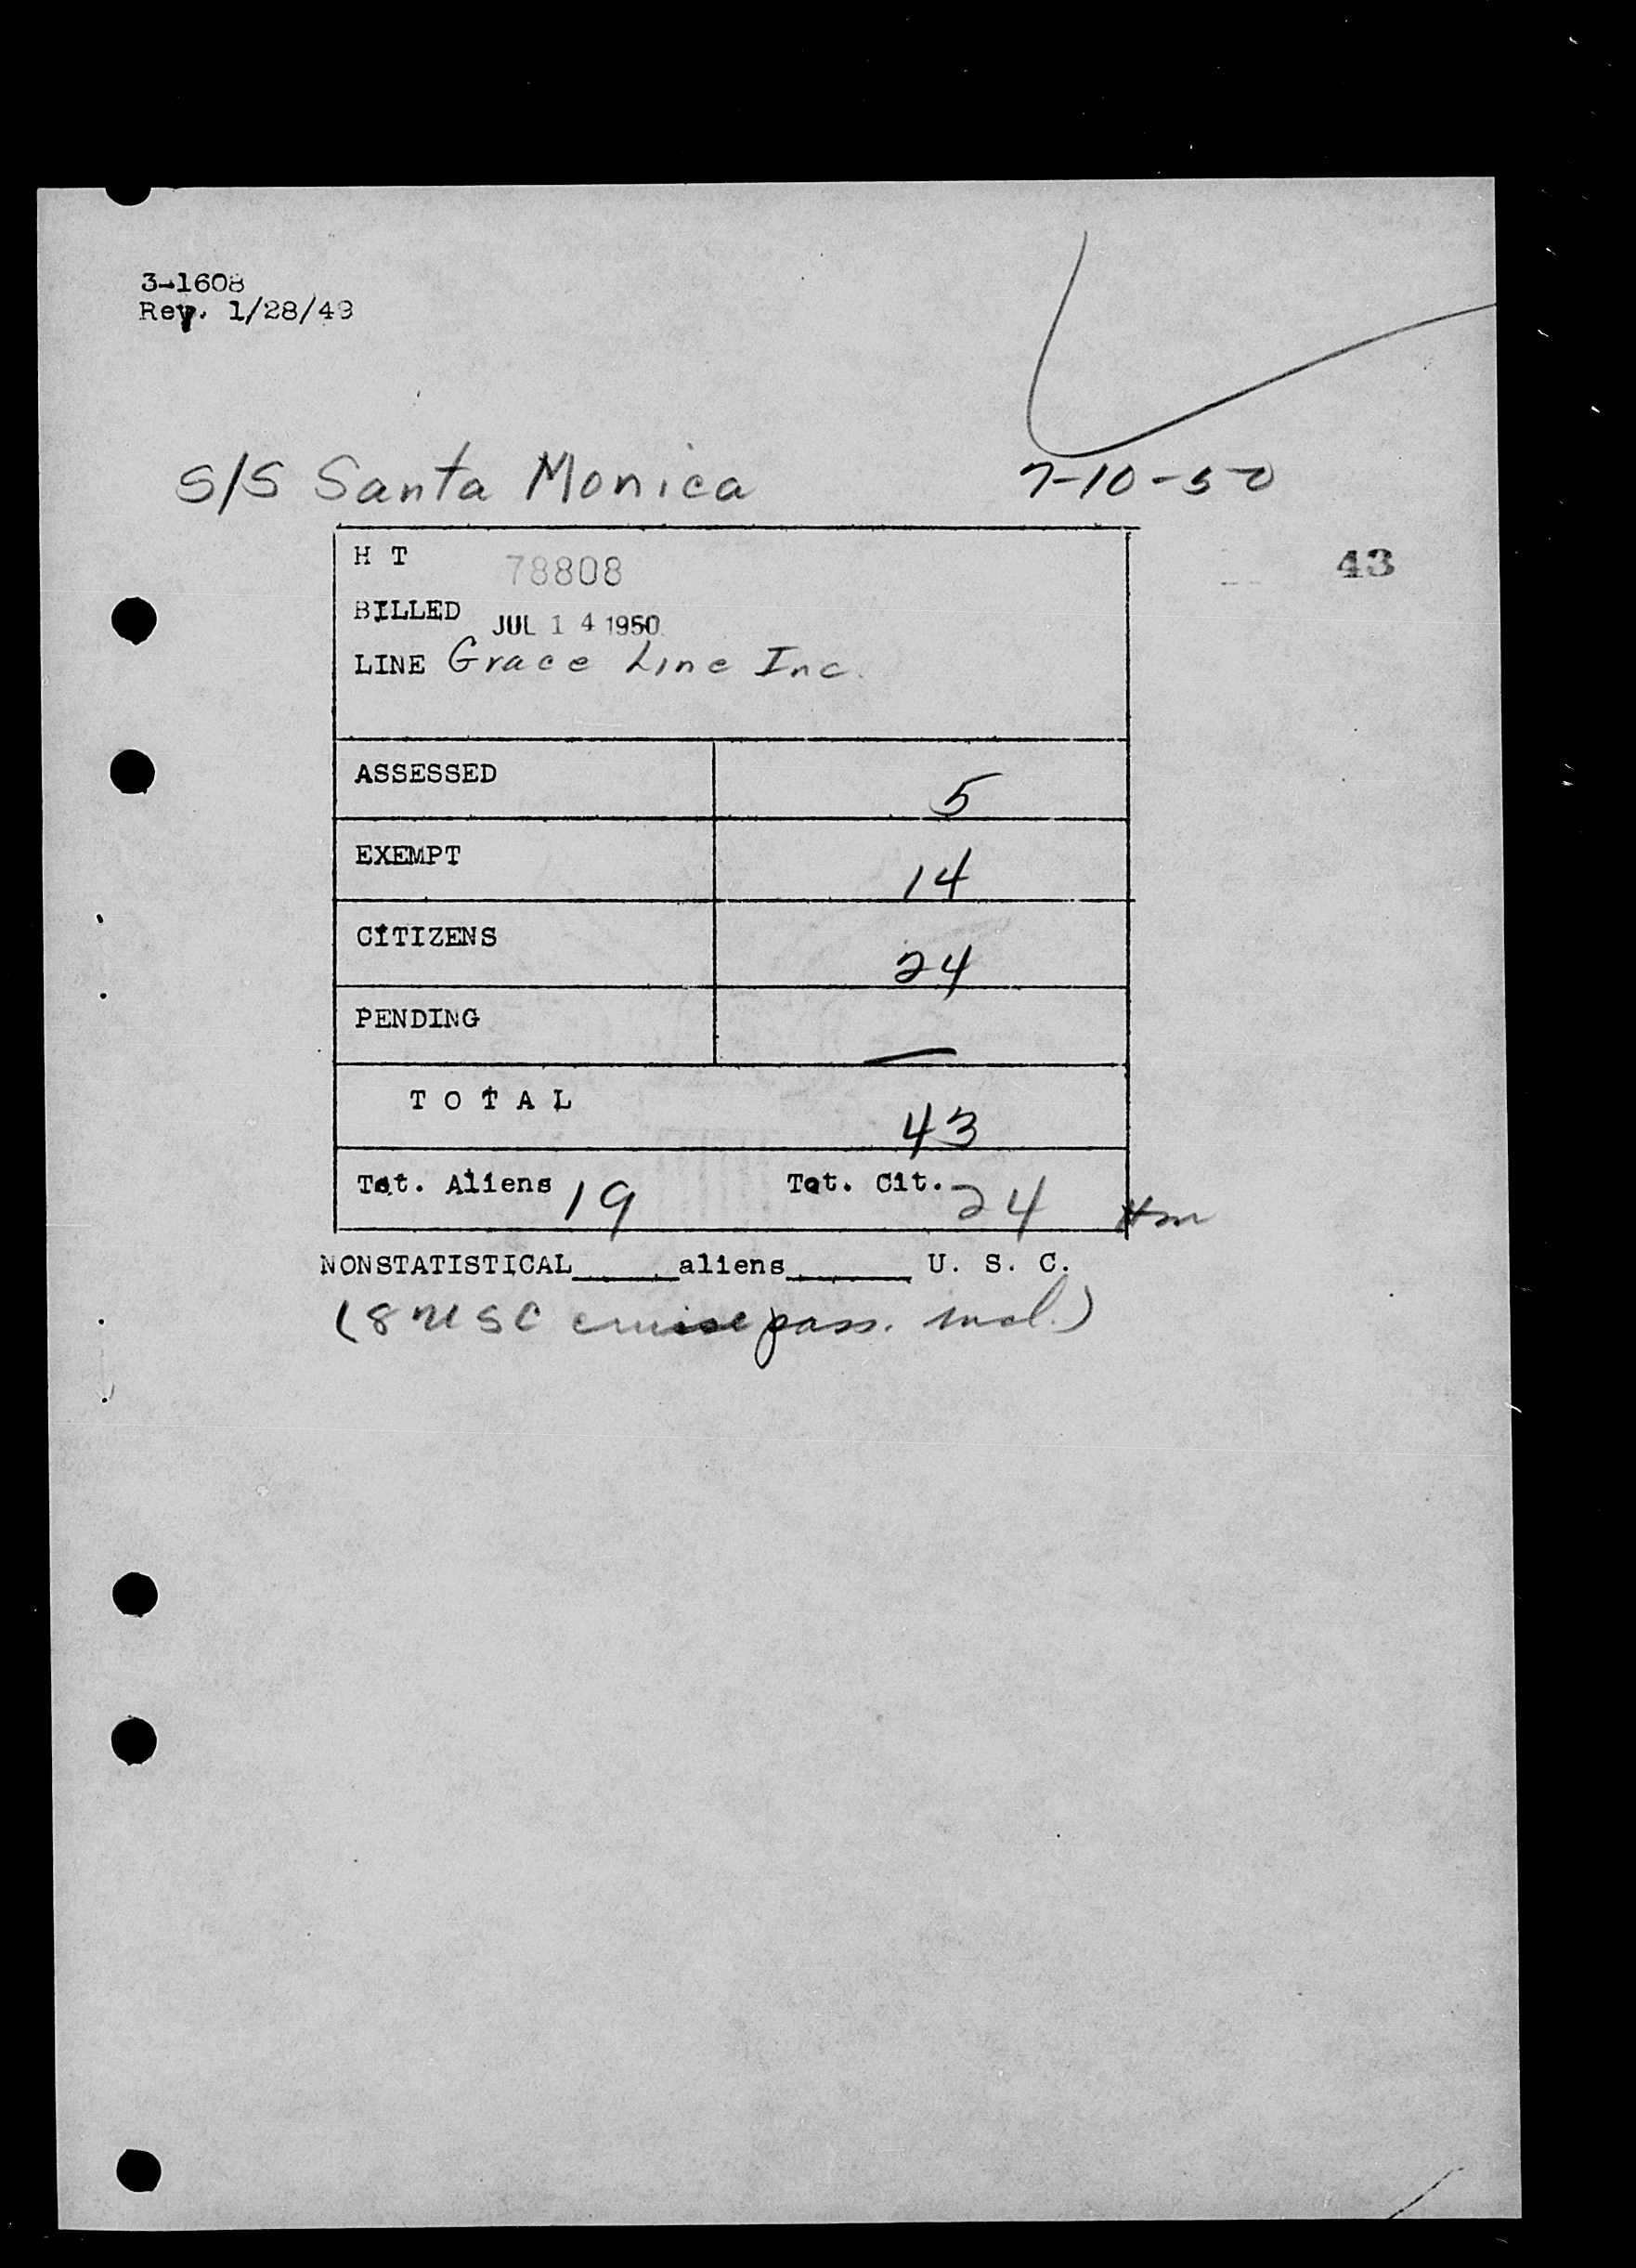 3-1608
Rev. 1/28/49
S/S Santa Monica 7-10-50
H T 78808
43
BILLED JUL 14 1950
LINE Grace Line Inc.
ASSESSED 5
EXEMPT 14
CITIZENS 24
PENDING —
T O T A L 43
Tot. Aliens 19 Tot. Cit. 24
NONSTATISTICAL_____aliens______ U. S. C.
(8 USC cruise pass. incl.)